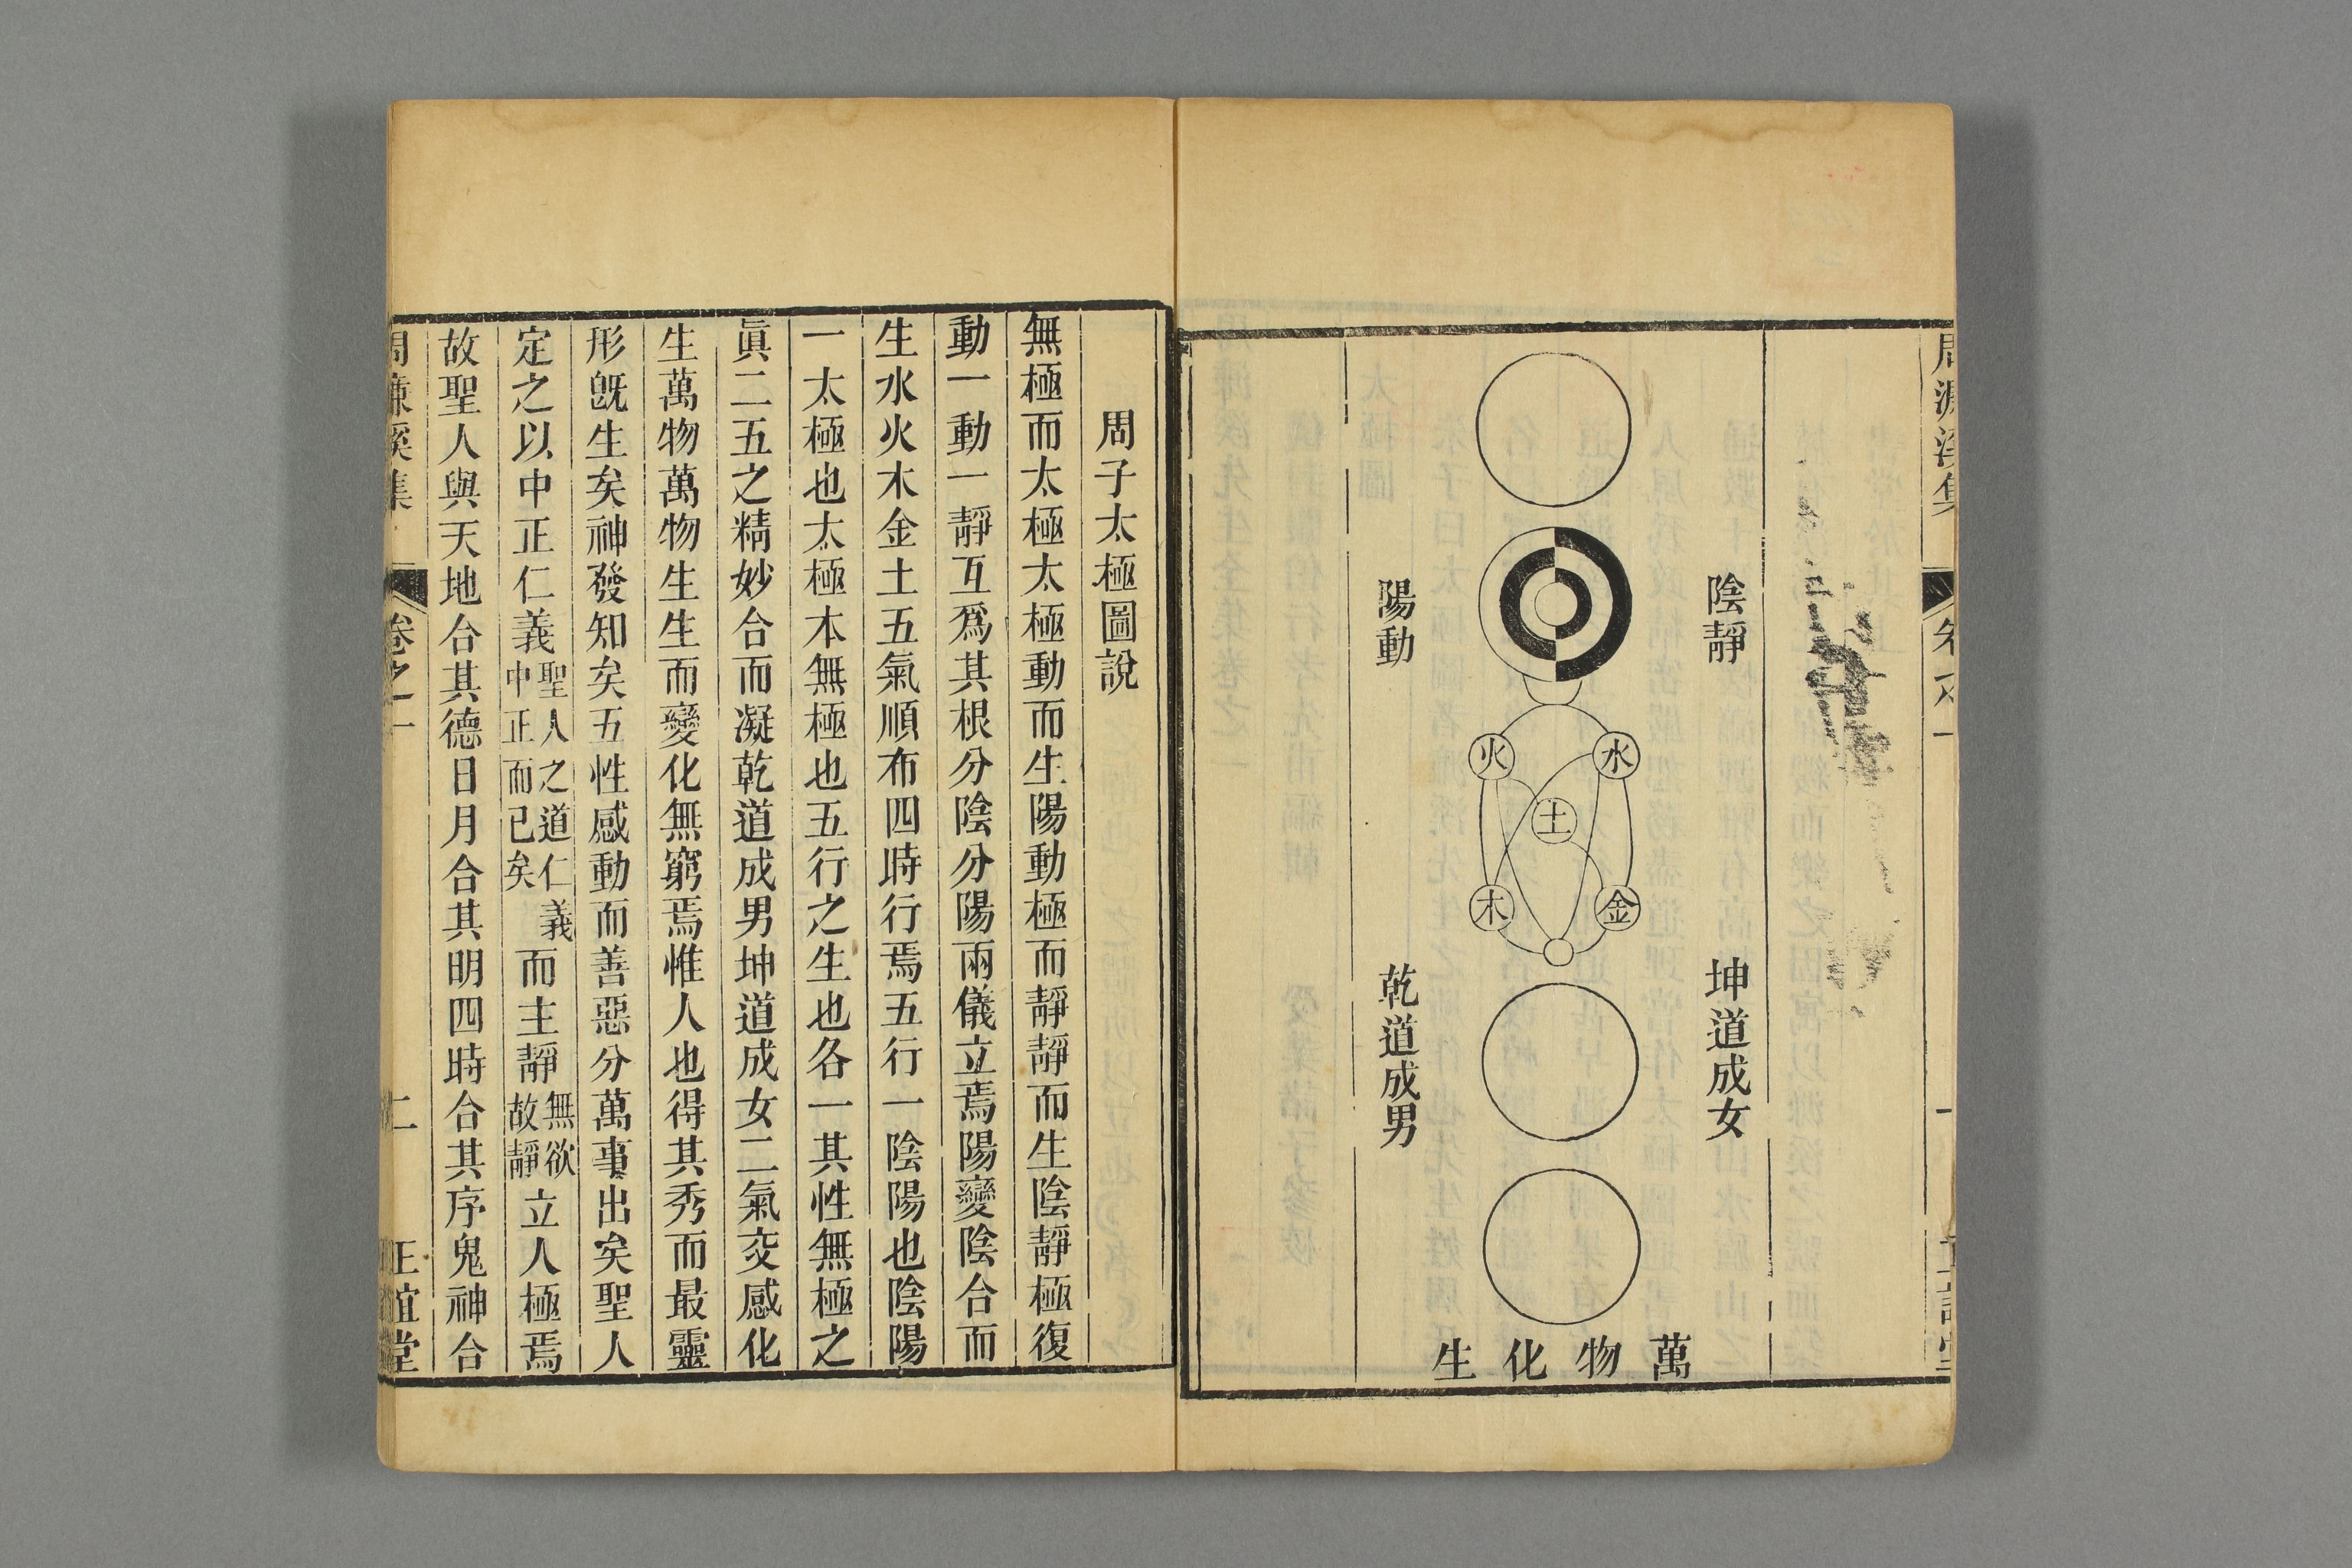 周濂溪集
卷之一
陰靜
坤道成女
水
火
土
金
木
萬物化生
陽動
乾道成男
周子太極圖說
無極而太極太極動而生陽動極而靜靜而生陰靜極復
動一動一靜互爲其根分陰分陽兩儀立焉陽變陰合而
生水火木金土五氣順布四時行焉五行一陰陽也陰陽
一太極也太極本無極也五行之生也各一其性無極之
眞二五之精妙合而凝乾道成男坤道成女二氣交感化
生萬物萬物生生而變化無窮焉惟人也得其秀而最靈
形旣生矣神發知矣五性感動而善惡分萬事出矣聖人
定之以中正仁義聖人之道仁義中正而已矣而主靜無欲故靜立人極焉
故聖人與天地合其德日月合其明四時合其序鬼神合
周濂溪集
卷之一
二
正誼堂